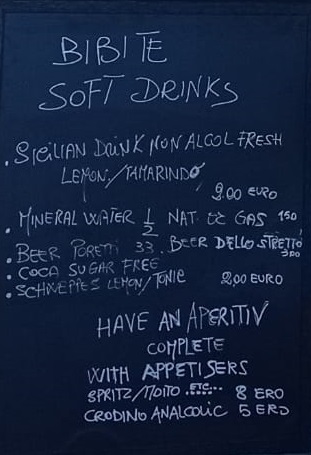 BIBITE
SOFT DRINKS
. SICILIAN DRINK NON ALCOL FRESH
LEMON/TAMARINDO
2.00 EURO
. MINERAL WATER 1/2 NAT. E GAS 150
. BEER PORETTI 33. BEER DELLO STRETTO
300
. COCA SUGAR FREE
. SCHWEPPES LEMON/TONIC 2,00 EURO
HAVE AN APERITIV
COMPLETE
WITH APPETISERS
SPRITZ/MOITO ETC... 8 ERO
CRODINO ANALCOLIC 5 ERO